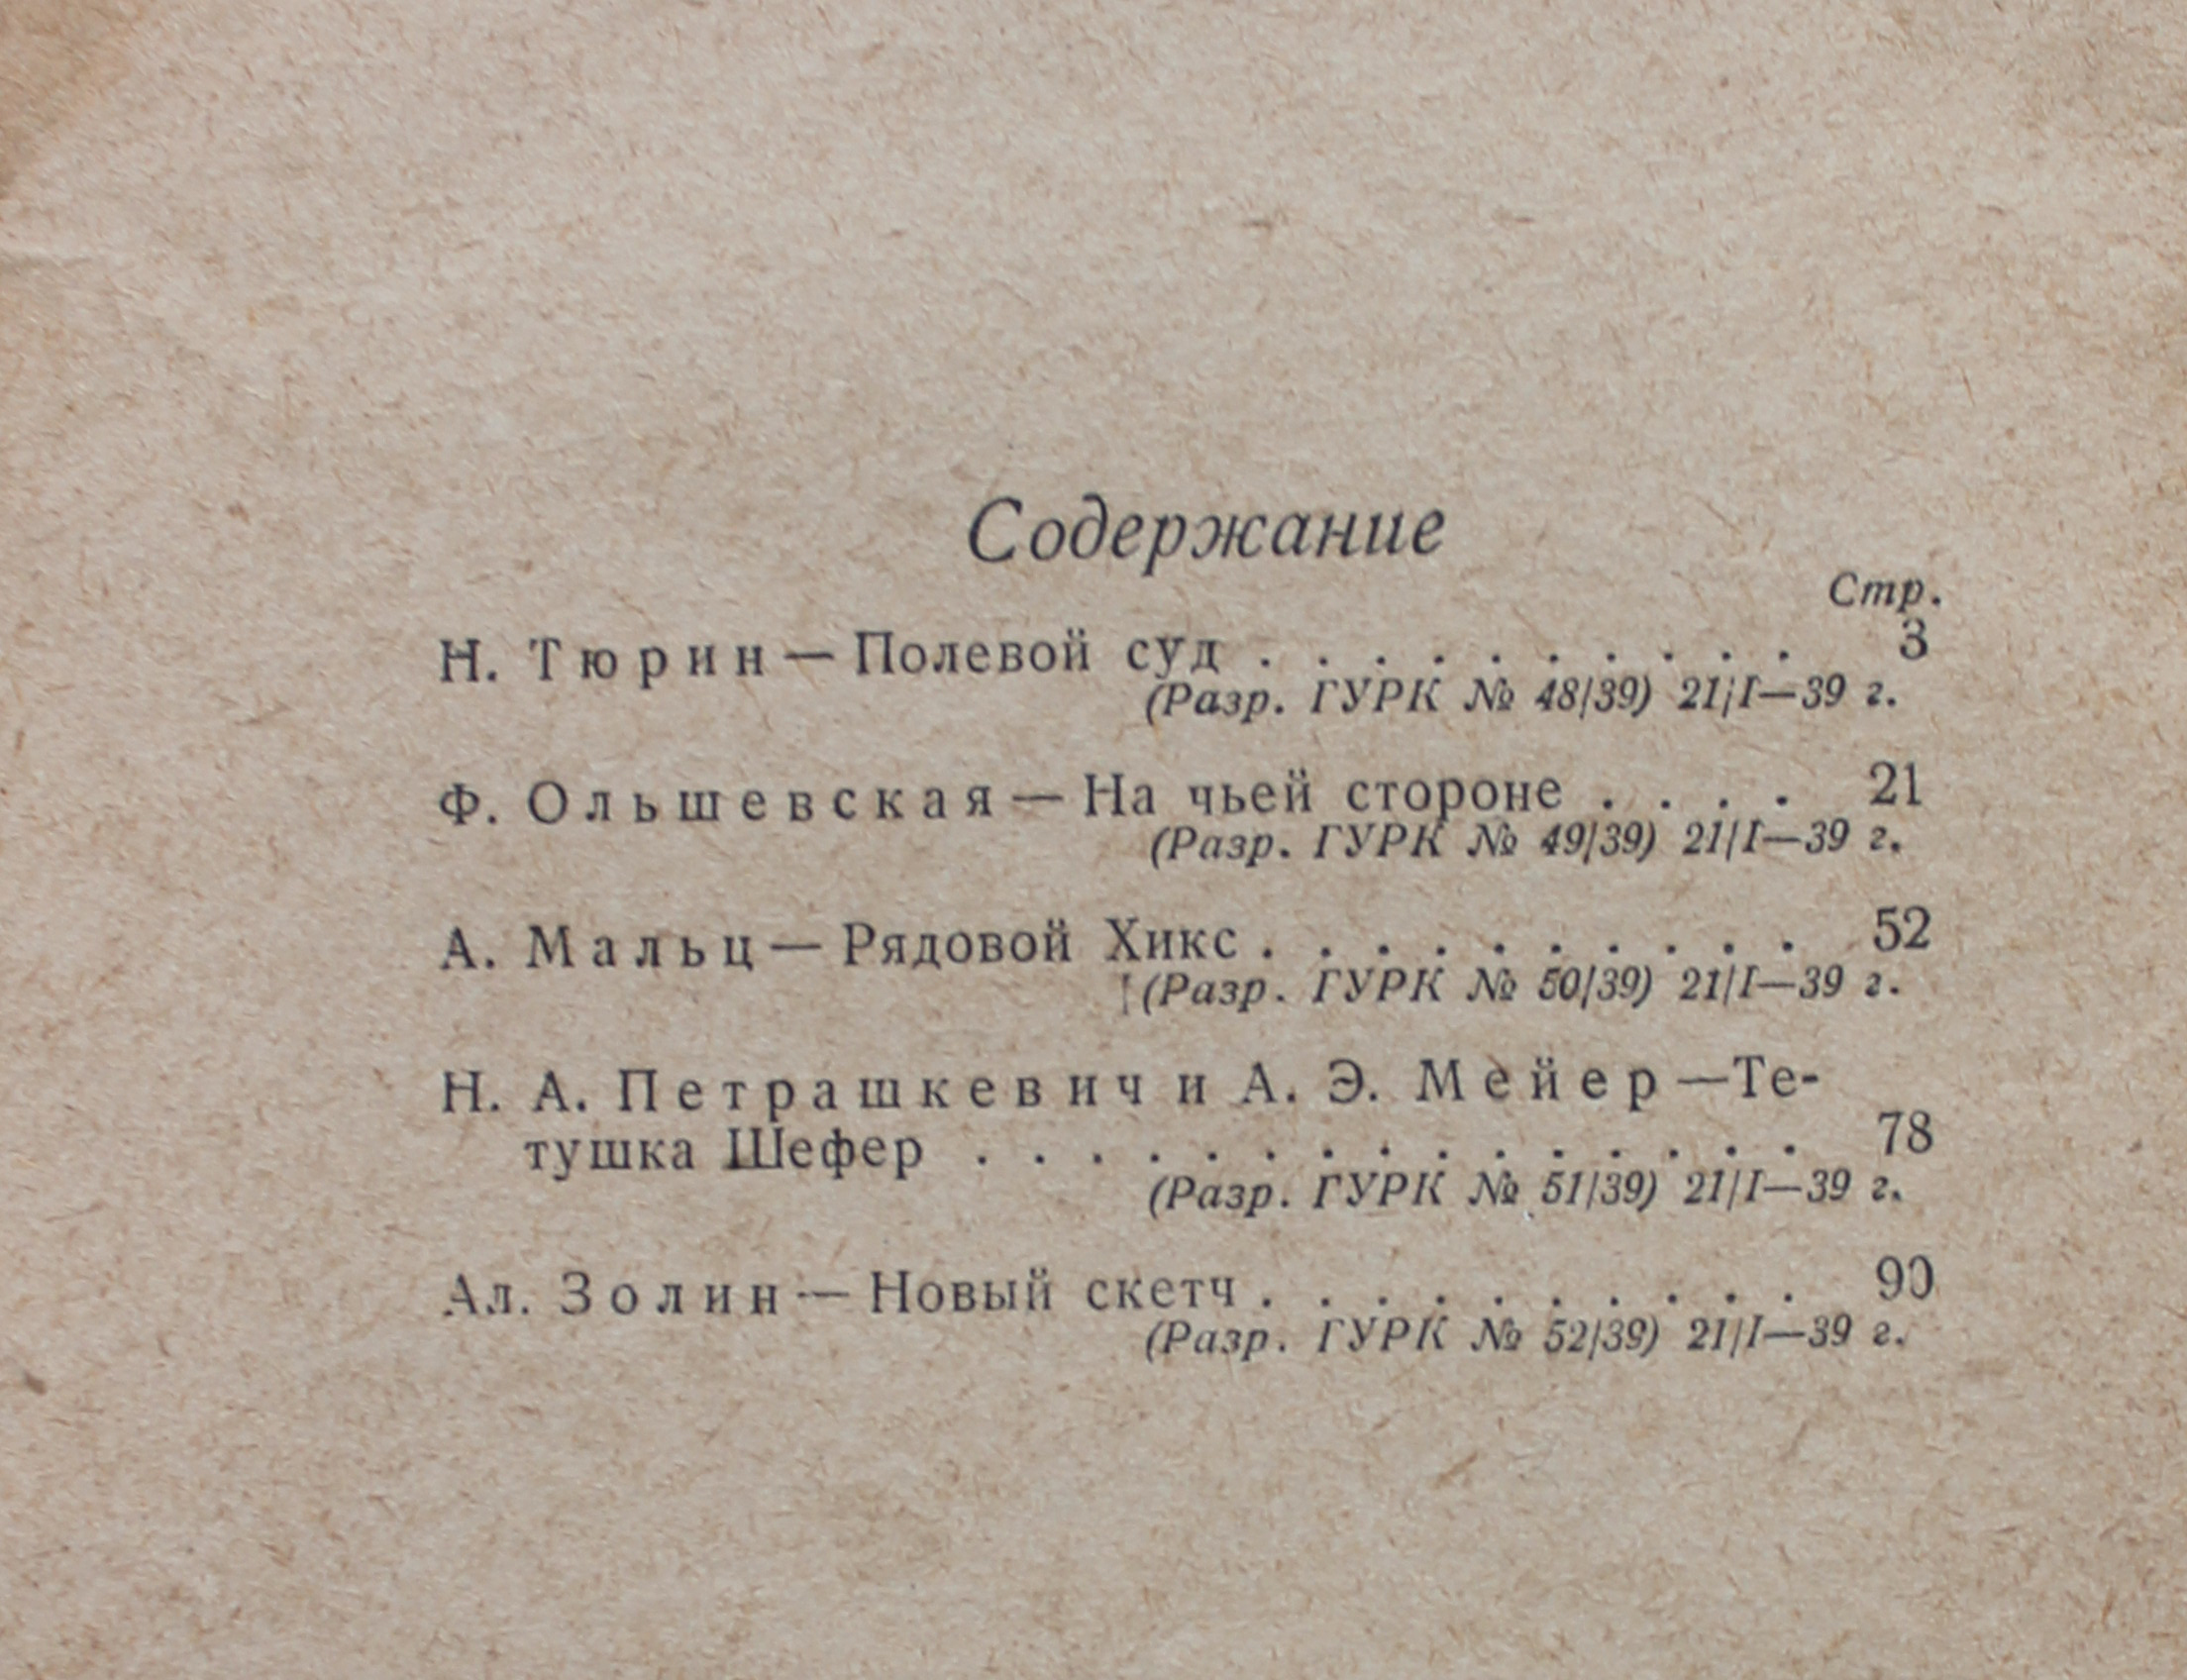 Содержание
Стр.
Н. Тюрин — Полевой суд . . . . . . . . . . 3
(Разр. ГУРК № 48/39) 21/I—39 г.
Ф. Ольшевская — На чьей стороне . . . . 21
(Разр. ГУРК № 49/39) 21/I—39 г.
А. Мальц — Рядовой Хикс . . . . . . . . . . 52
(Разр. ГУРК № 50/39) 21/I—39 г.
Н. А. Петрашкевич и А. Э. Мейер —Те-
тушка Шефер . . . . . . . . . . . . . . . 78
(Разр. ГУРК № 51/39) 21/I—39 г.
Ал. Золин — Новый скетч . . . . . . . . . . 90
(Разр. ГУРК № 52/39) 21/I—39 г.